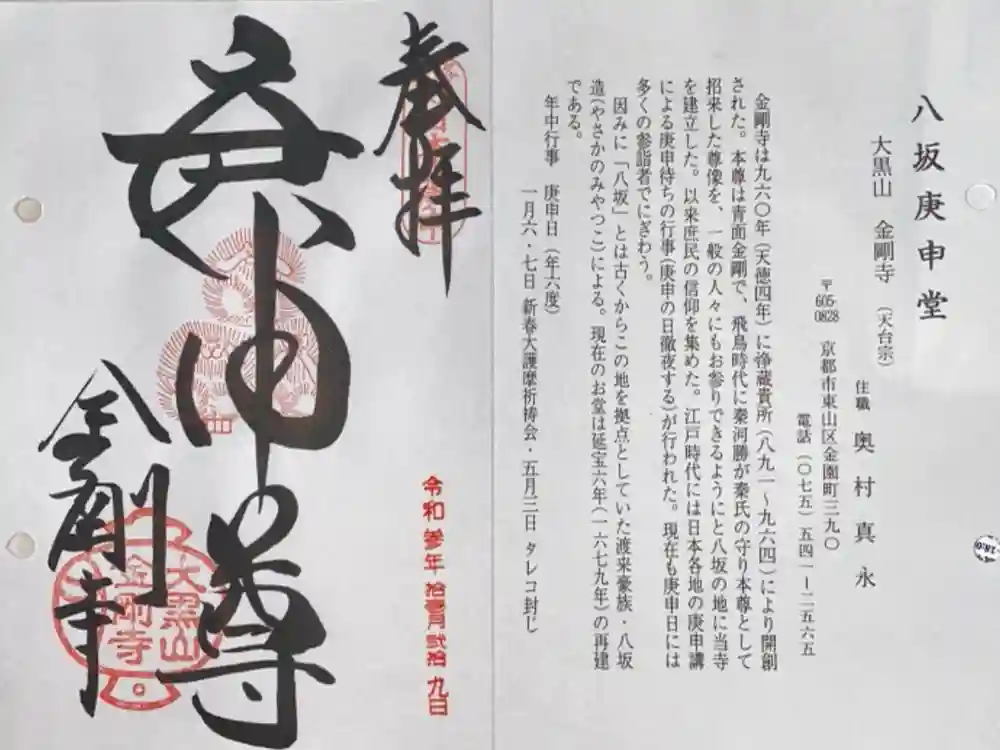 八坂庚申堂
大黒山　金剛寺　（天台宗）
住職　奥村真永
〒605-0828　京都市東山区金園町三九〇
電話（〇七五）五四一ー二五六五
金剛寺は九六〇年（天徳四年）に浄蔵貴所（八九一～九六四）により開創
された。本尊は青面金剛で、飛鳥時代に秦河勝が秦氏の守り本尊として
招来した尊像を、一般の人々にもお参りできるようにと八坂の地に当寺
を建立した。以来庶民の信仰を集めた。江戸時代には日本各地の庚申講
による庚申待ちの行事（庚申の日徹夜する）が行われた。現在も庚申日には
多くの参詣者でにぎわう。
因みに「八坂」とは古くからこの地を拠点としていた渡来豪族・八坂
造（やさかのみやつこ）による。現在のお堂は延宝六年（一六七九年）の再建
である。
年中行事　庚申日（年六度）
一月六・七日 新春大護摩祈祷会・五月三日 タレコ封じ
奉拝
令和参年拾壱月弐拾九日
庚申尊
金剛寺
大黒山
金剛寺